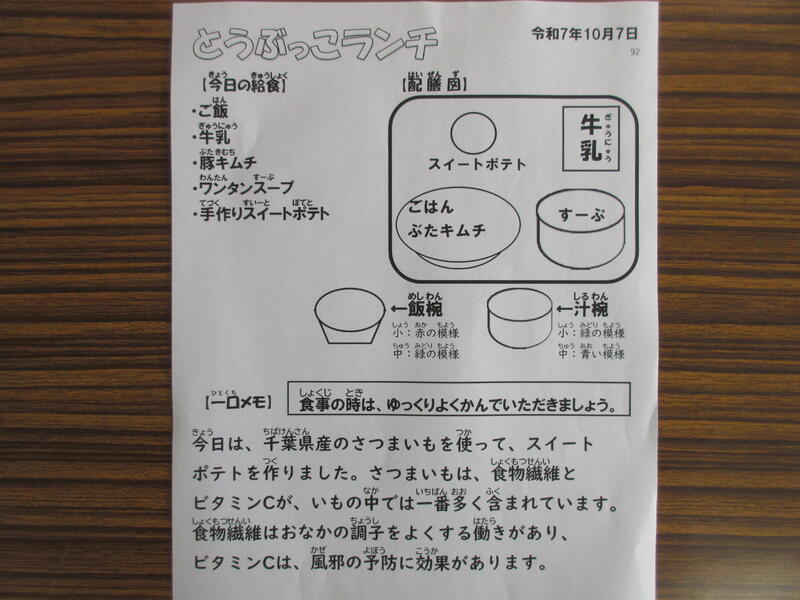 とうぶっこランチ
令和7年10月7日
92
【今日の給食】
・ご飯
・牛乳
・豚キムチ
・ワンタンスープ
・手作りスイートポテト
【配膳図】
スイートポテト
牛乳
ごはん
ぶたキムチ
すーぷ
←飯椀
小：赤の模様
中：緑の模様
←汁椀
小：緑の模様
中：青い模様
【一口メモ】
食事の時は、ゆっくりよくかんでいただきましょう。
今日は、千葉県産のさつまいもを使って、スイート
ポテトを作りました。さつまいもは、食物繊維と
ビタミンCが、いもの中では一番多く含まれています。
食物繊維はおなかの調子をよくする働きがあり、
ビタミンCは、風邪の予防に効果があります。